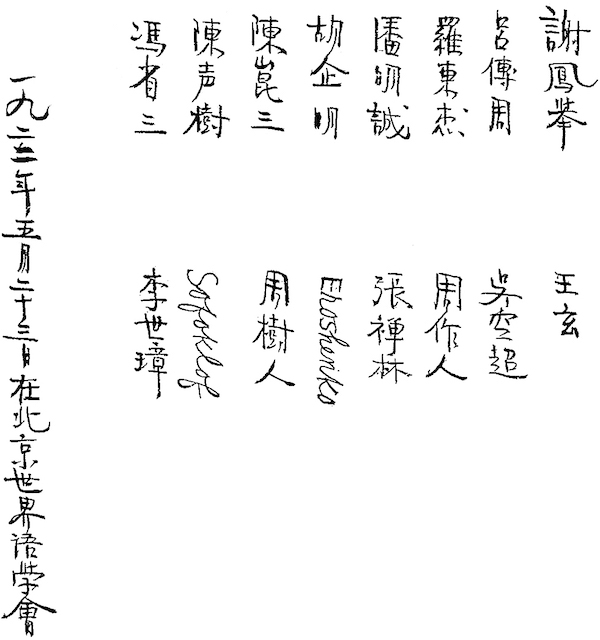 謝鳳舉
呂傳周
羅東杰
潘明誠
胡企明
陳崑三
陳声樹
馮省三
王玄
吳空超
周作人
張禪林
Eroshenko
周樹人
Sofoklof
李世璋
一九二三年五月二十三日在北京世界语學會